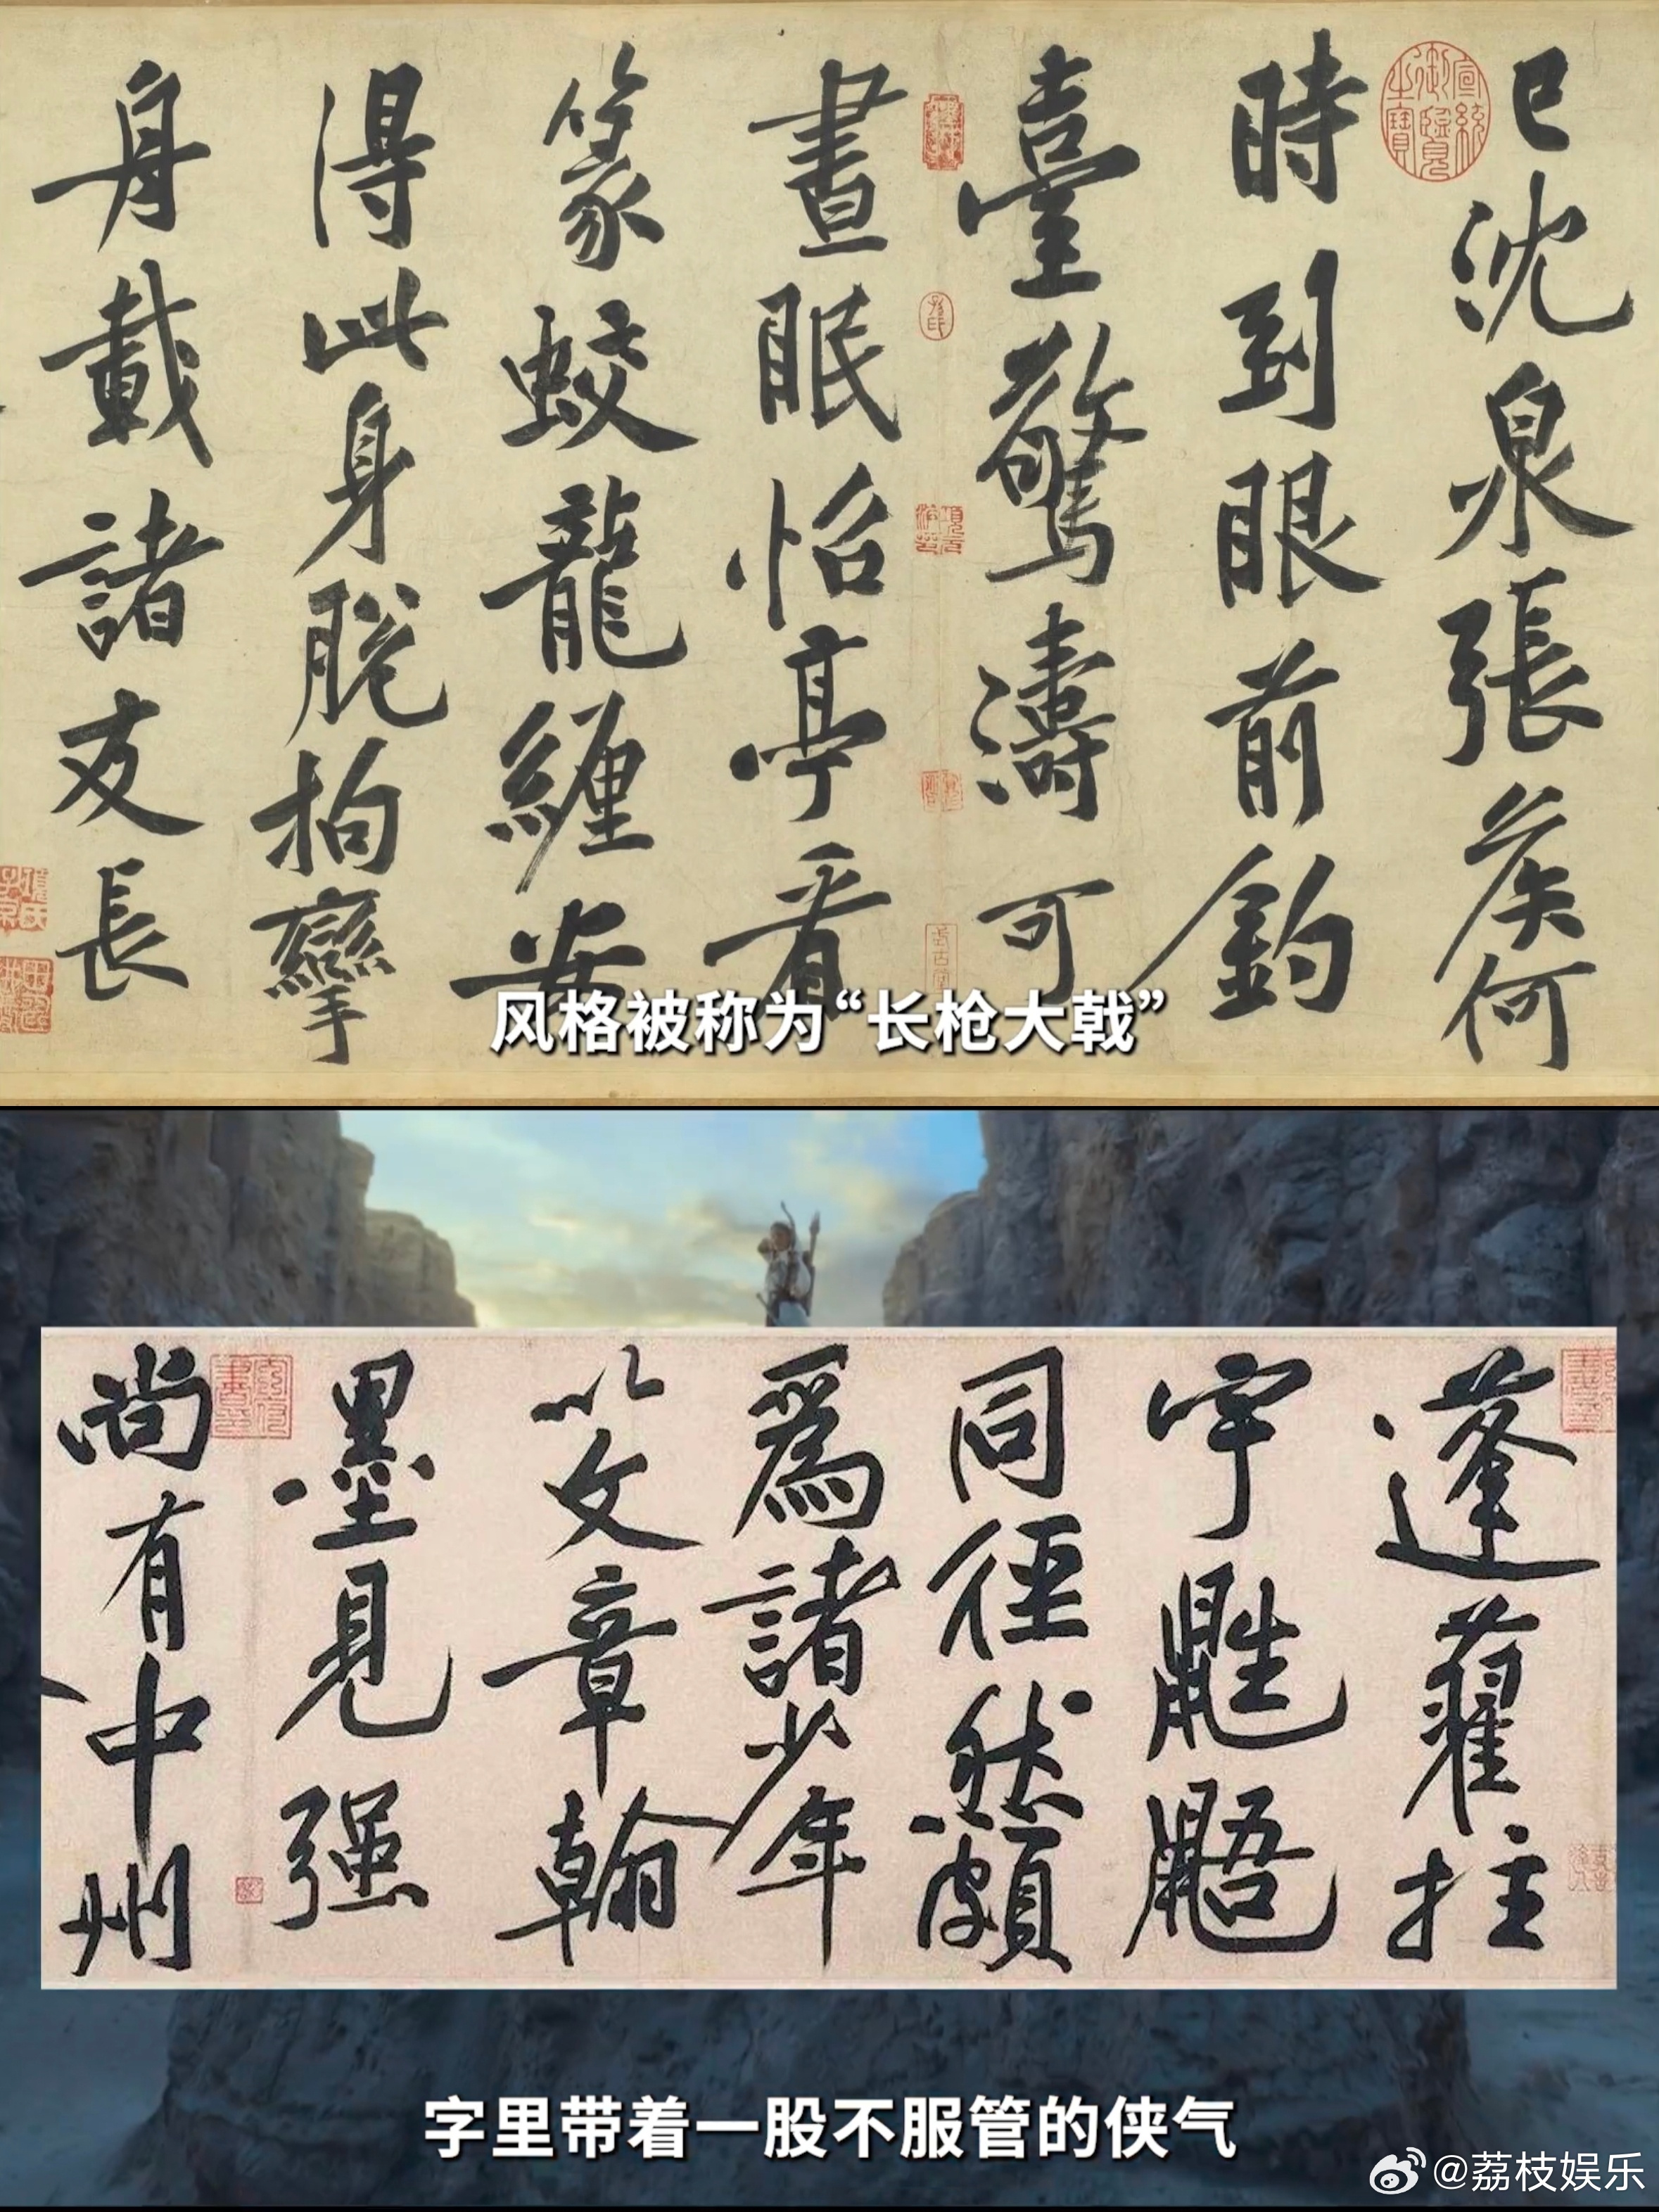 已沈泉張侯何
時到眼前釣
臺驚濤可
晝眠怡亭看
篆蛟龍纏安
得此身脫拘攣
舟載諸友長
宣統御覽之寶
风格被称为“长枪大戟”
蓬藋拄
宇鼪鼯
同徑然頗
爲諸少年
以文章翰
墨見强
尚有中州
字里带着一股不服管的侠气
@荔枝娱乐